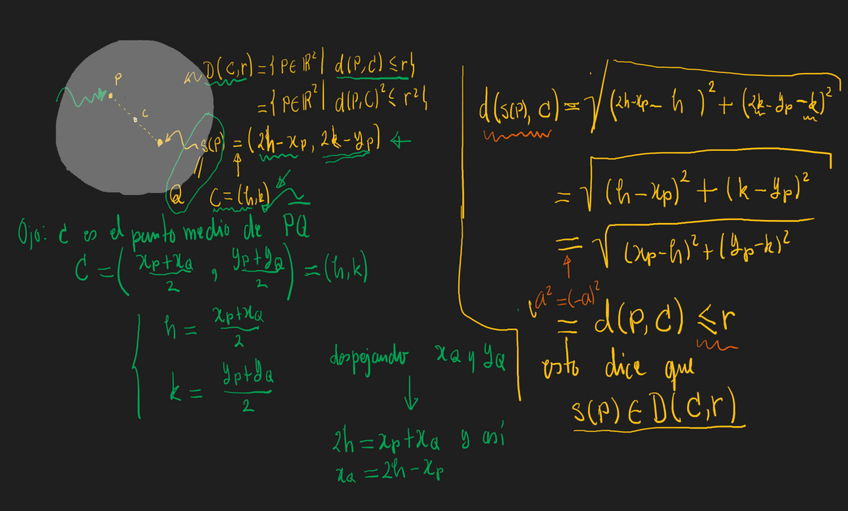 P
C
D(C,r) = { P∈ℝ² | d(P,C) ≤ r}
= { P∈ℝ² | d(P,C)² ≤ r²}
s(P) = (2h-xₚ, 2k-yₚ) ←
Q
C=(h,k)
Ojo: C es el punto medio de PQ
C = ( xₚ+x_Q / 2 , yₚ+y_Q / 2 ) = (h,k)
h = xₚ+x_Q / 2
k = yₚ+y_Q / 2
despejando x_Q y y_Q
2h = xₚ+x_Q y así
x_Q = 2h-xₚ
d(s(P), C) = √((2h-xₚ-h)² + (2k-yₚ-k)²)
= √((h-xₚ)² + (k-yₚ)²)
= √((xₚ-h)² + (yₚ-k)²)
a² = (-a)²
= d(P,C) ≤ r
esto dice que
s(P) ∈ D(C,r)